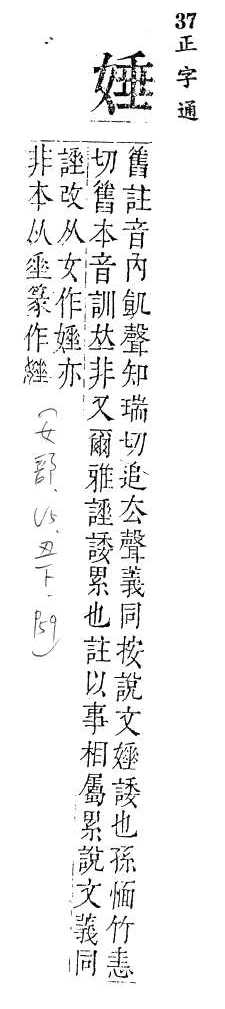 37 正字通
娷
舊註音內飢聲知瑞切追去聲義同按說文娷諉也孫愐竹恚
切舊本音訓𠀤非又爾雅諈諉累也註以事相屬累說文義同
諈改从女作娷亦
非本从垂篆作
(女部, V5, 丑下, P59)